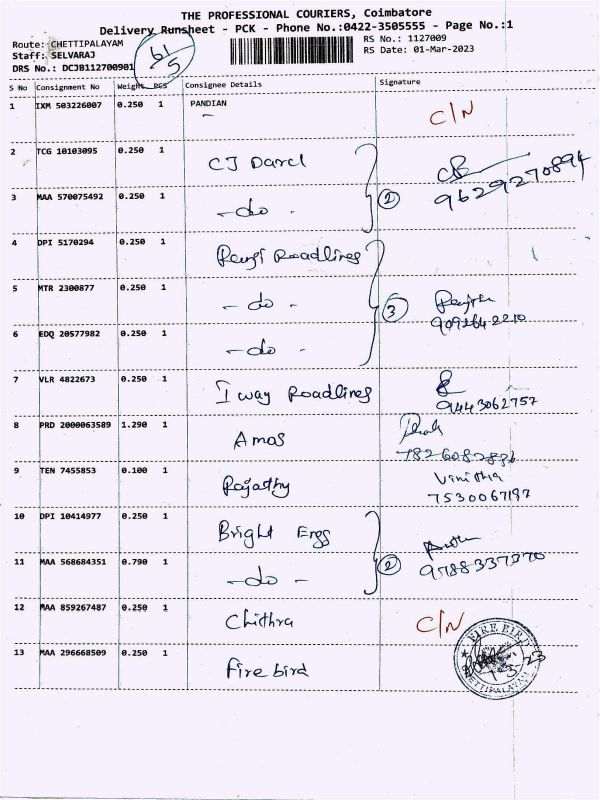 THE PROFESSIONAL COURIERS, Coimbatore
Delivery Runsheet - PCK - Phone No.:0422-3505555 - Page No.:1
Route: CHETTIPALAYAM
RS No.: 1127009
Staff: SELVARAJ
RS Date: 01-Mar-2023
DRS No.: DCJB112700901
S No Consignment No Weight PCS Consignee Details Signature
1 IXM 503226007 0.250 1 PANDIAN C/N
2 TCG 10103095 0.250 1 CJ Darcl
9629270894
3 MAA 570075492 0.250 1 -do- 2
4 DPI 5170294 0.250 1 Roadlines
5 MTR 2300877 0.250 1 -do- 3
9092642210
6 EDQ 20577982 0.250 1 -do-
7 VLR 4822673 0.250 1 I way Roadlines
9443062757
8 PRD 2000063589 1.290 1 Amos
9 TEN 7455853 0.100 1 Rajathy Vinitha
7530067197
10 DPI 10414977 0.250 1 Bright Engg
11 MAA 568684351 0.790 1 -do- 2
9788337370
12 MAA 859267487 0.250 1 Chithra C/N
13 MAA 296668509 0.250 1 Fire bird
FIRE BIRD